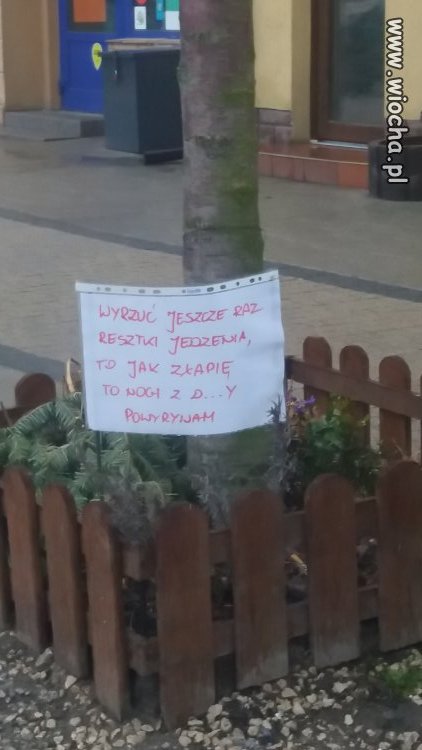 www.wiocha.pl
WYRZUĆ JESZCZE RAZ
RESZTKI JEDZENIA,
TO JAK ZŁAPIĘ
TO NOGI Z D...Y
POWYRYWAM